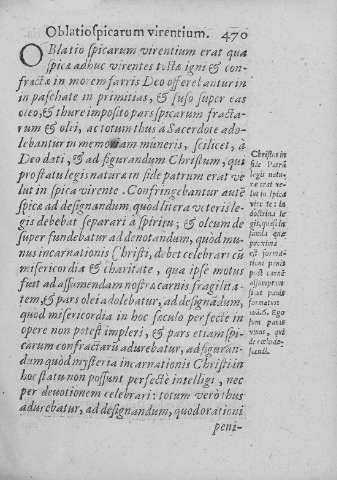 Oblatio spicarum virentium. 470
OBlatio spicarum virentium erat qua
spicæ adhuc virentes tostæ igni & con-
fractæ in morem farris Deo offerebantur in
in paschate in primitias, & fuso super eas
oleo, & thure imposito pars spicarum fracta-
rum & olei, ac totum thus a Sacerdote ado-
lebantur in memoriam muneris, scilicet, à
Deo dati, & ad figurandum Christum, qui
pro statu legis naturæ in fide patrum erat ve-
lut in spica virente. Confringebantur autẽ
spicæ ad designandum, quod litera veteris le-
gis debebat separari à spiritu; & oleum de
super fundebatur ad denotandum, quòd mu-
nus incarnationis Christi, debet celebrari cũ
misericordia & charitate, qua ipse motus
fuit ad assumendam nostræ carnis fragilita-
tem, & pars olei adolebatur, ad designãdum,
quòd misericordia in hoc sæculo perfecte in
opere non potest impleri, & pars etiam spi-
carum confractarũ adurebatur, ad figuran-
dum quòd mysteria incarnationis Christi in
hoc statu non possunt perfectè intelligi, nec
per devotionem celebrari: totum verò thus
adurebatur, ad designandum, quod orationi
peni-
Christus in
fide Patrũ
legis natu-
ræ erat ve-
lut in spica
virẽte: in
doctrina le-
gis, quasi in
simila quæ
proxima
est forma-
tioni panis
post carnẽ
assumptam
fuit panis
formatus
Ioã. 6. Ego
sum panis
vivus, qui
de cœlo de-
scendi.